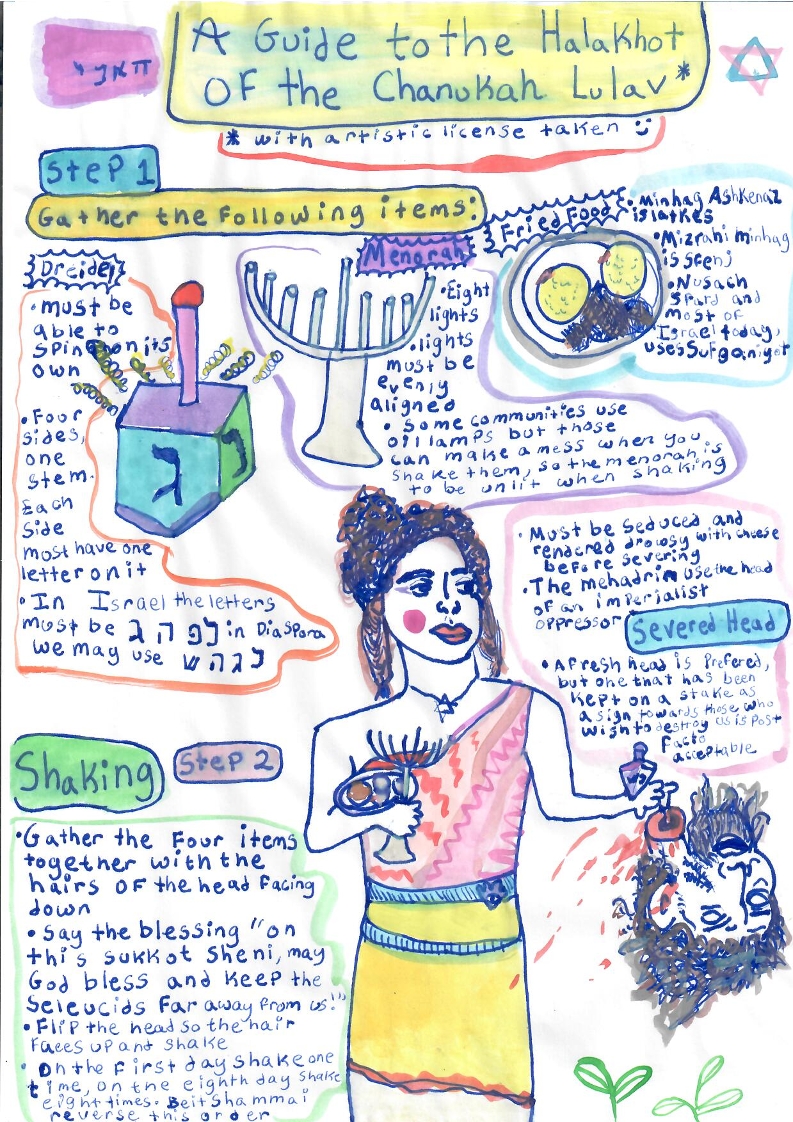 חאנ׳י
A Guide to the Halakhot
OF the Chanukah Lulav*
* with artistic license taken
Step 1
Gather the Following items:
Dreidel
• must be
able to
spin on its
own
• Four
sides,
one
stem.
Each
side
must have one
letter on it
• In Israel the letters
must be ג ה פ נ in Diaspora
we may use נ ג ה ש
ג
נ
Menorah
• Eight
lights
• lights
must be
evenly
aligned
• Some communities use
oil lamps but those
can make a mess when you
shake them, so the menorah is
to be unlit when shaking
Fried Food
• Minhag Ashkenaz
is latkes
• Mizrahi minhag
is Scenj
• Nusach
Sfard and
most of
Israel today,
uses Sufganiyot
• Must be seduced and
rendered drowsy with cheese
before severing
• The mehadrin use the head
of an imperialist
oppressor
Severed Head
• A fresh head is Prefered,
but one that has been
kept on a stake as
a sign towards those who
wish to destroy us is post
facto
acceptable
Shaking
Step 2
• Gather the Four items
together with the
hairs OF the head Facing
down
• Say the blessing "on
this sukkot Sheni, may
God bless and keep the
Seleucids Far away From us!"
• Flip the head so the hair
Faces up and shake
• On the First day shake one
time, on the eighth day shake
eight times. Beit Shammai
reverse this order